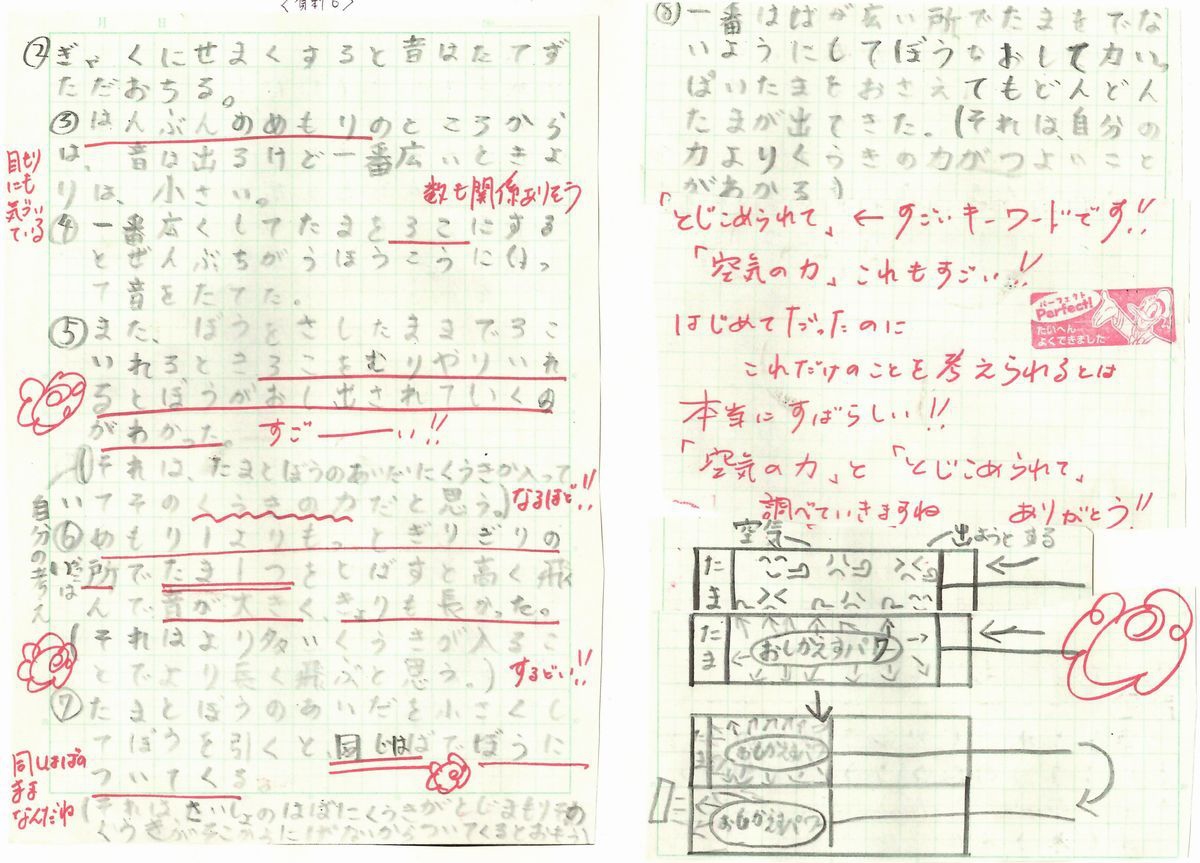 〈資料6〉
② ぎゃくにせまくすると音はたてず
ただおちる。
③ はんぶんのめもりのところから
は、音は出るけど一番広いときよ
りは、小さい。
目もり
にも
気づい
ている
数も関係ありそう
④ 一番広くしてたまを3こにする
とぜんぶちがうほうこうにいっ
て音をたてた。
⑤ また、ぼうをさしたままで3こ
いれるとき3こをむりやりいれ
るとぼうがおし出されていくの
がわかった。
すごーい!!
(それは、たまとぼうのあいだにくうきが入って
いてそのくうきの力だと思う。)
なるほど!!
自分の考え
⑥ めもり1よりもっとぎりぎりの
所でたま1つをとばすと高く飛
んで、音が大きく、きょりも長かった。
(それはより多いくうきが入るこ
とでより長く飛ぶと思う。)
するどい!!
⑦ たまとぼうのあいだを小さくし
てぼうを引くと、同じはばでぼうに
ついてくる。
同じはばの
まま
なんだね
(それは、さいしょのはばにくうきがとじまもりその
⑧ 一番はばが広い所でたまをでな
いようにしてぼうをおして力いっ
ぱいたまをおさえてもどんどん
たまが出てきた。(それは、自分の
力よりくうきの力がつよいこと
がわかる)
「とじこめられて」 ← すごいキーワードです!!
「空気の力」これもすごい!!
パーフェクト
Perfect!
たいへん
よくできました
はじめてだったのに
これだけのことを考えられるとは
本当にすばらしい!!
「空気の力」と「とじこめられて」
調べていきますね ありがとう!!
空気 出ようとする
たま
たま おしかえすパワー
たま おしかえすパワー
おしかえすパワー